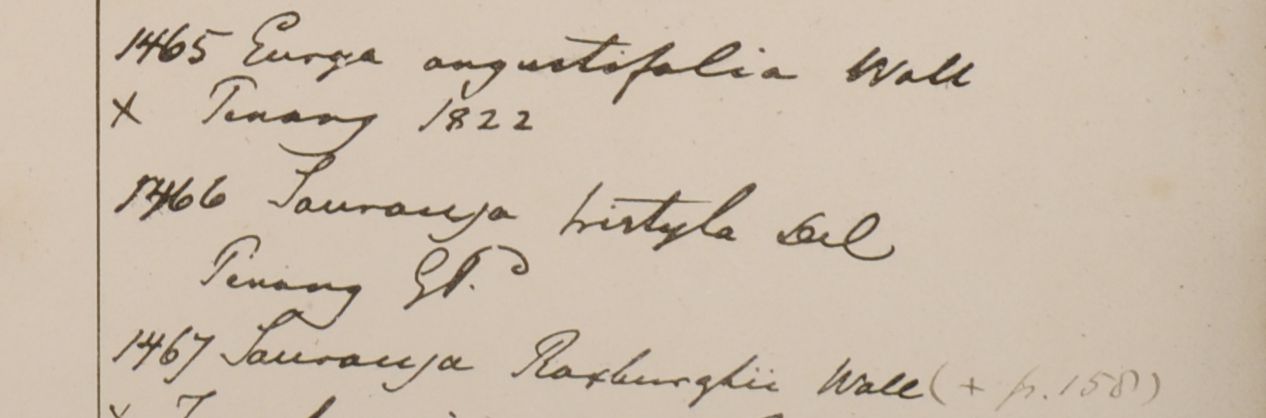 1465 Eurya angustifolia Wall
x Penang 1822
1466 Saurauja tristyla Del
Penang GP.
1467 Saurauja Roxburghii Wall (+ p. 158)
x